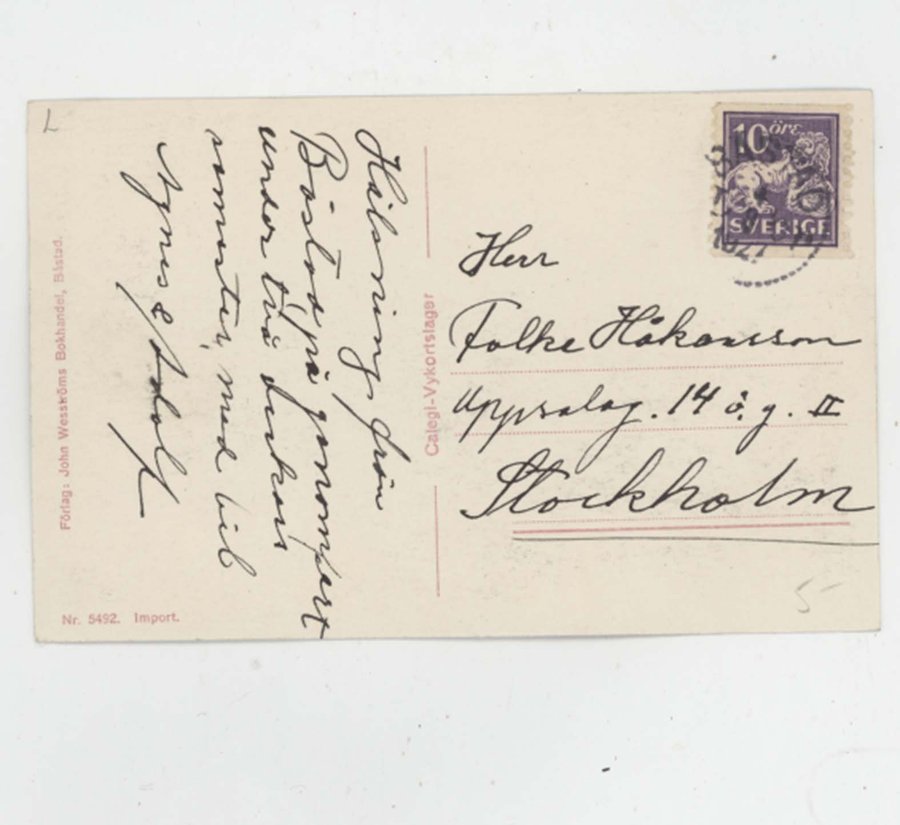 L
Hälsning från
Båstad, på genomfart
under två veckors
semester, med bil
Agnes & Adolf
Förlag: John Wesströms Bokhandel, Båstad.
Nr. 5492. Import.
Calegi-Vykortslager
10 öre
SVERIGE
Herr
Folke Håkansson
Uppsalag. 14 ö. g. II
Stockholm
5-